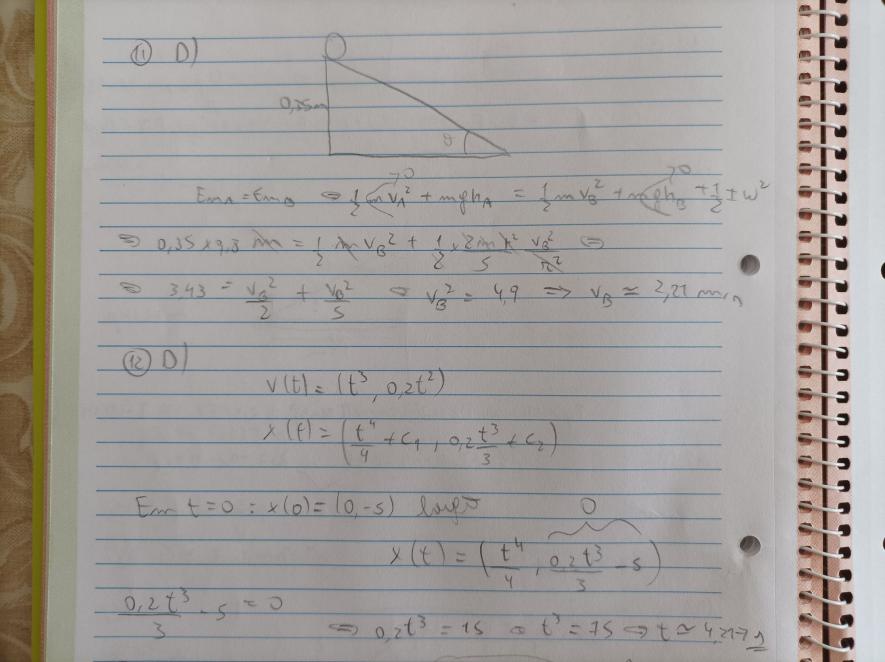 11 D)
0,35m
θ
EmA = EmB ⇔ 1/2 m vA² →0 + mghA = 1/2 m vB² + mghB →0 + 1/2 I w²
⇒ 0,35 × 9,8 m = 1/2 m vB² + 1/2 × 2mr²/5 vB²/r² ⇔
⇒ 3,43 = vB²/2 + vB²/5 ⇔ vB² = 4,9 ⇒ vB ≃ 2,21 m/s
12 D)
v(t) = (t³, 0,2t²)
x(t) = (t⁴/4 + C1, 0,2 t³/3 + C2)
Em t=0 : x(0) = (0,-5) logo
0
x(t) = (t⁴/4, 0,2t³/3 - 5)
0,2t³/3 - 5 = 0
⇔ 0,2t³ = 15 ⇔ t³ = 75 ⇔ t ≃ 4,217 s